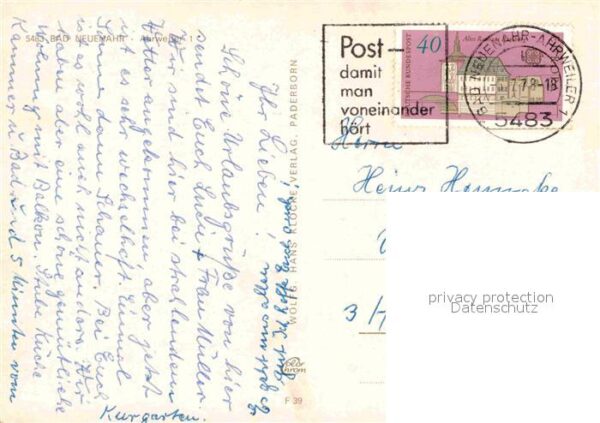 5483 BAD NEUENAHR - Ahrweiler 1
Ihr Lieben!
Schöne Urlaubsgrüße von hier
sendet Euch Luzie + Frau Müller.
Wir sind hier bei strahlendem
Wetter angekommen, aber jetzt
ist es sehr wechselhaft. Einmal
Sonne dann Schauer. Bei Euch
ist es wohl auch nicht anders. Wir
haben aber eine schöne gemütliche
Wohnung mit Balkon. Stube Küche
Kammer u. Bad. und 5 Minuten vom
Kurgarten.
WOLFG. HANS KLOCKE VERLAG, PADERBORN
Color
Chrom
F 39
Post-
damit
man
voneinander
hört
40
DEUTSCHE BUNDESPOST
BAD NEUENAHR-AHRWEILER 1
5483
Herrn
Heinz
privacy protection
Datenschutz